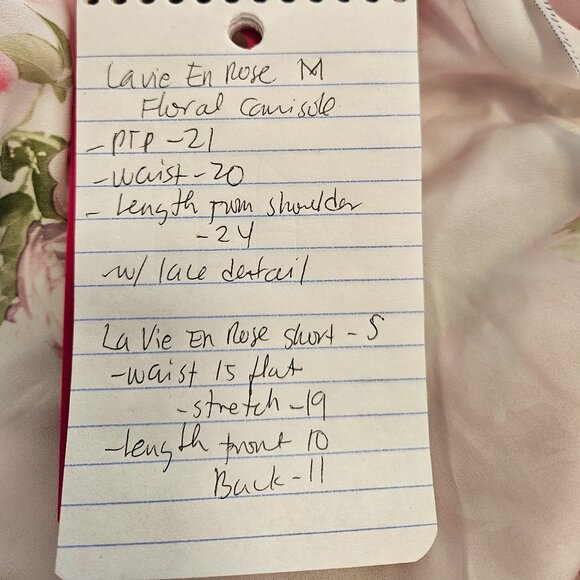 La vie En Rose M
Floral Camisole
- PTP - 21
- waist - 20
- Length from shoulder
- 24
- w/ lace detail
La Vie En Rose short - S
- waist 15 flat
- stretch - 19
- length front 10
Back - 11